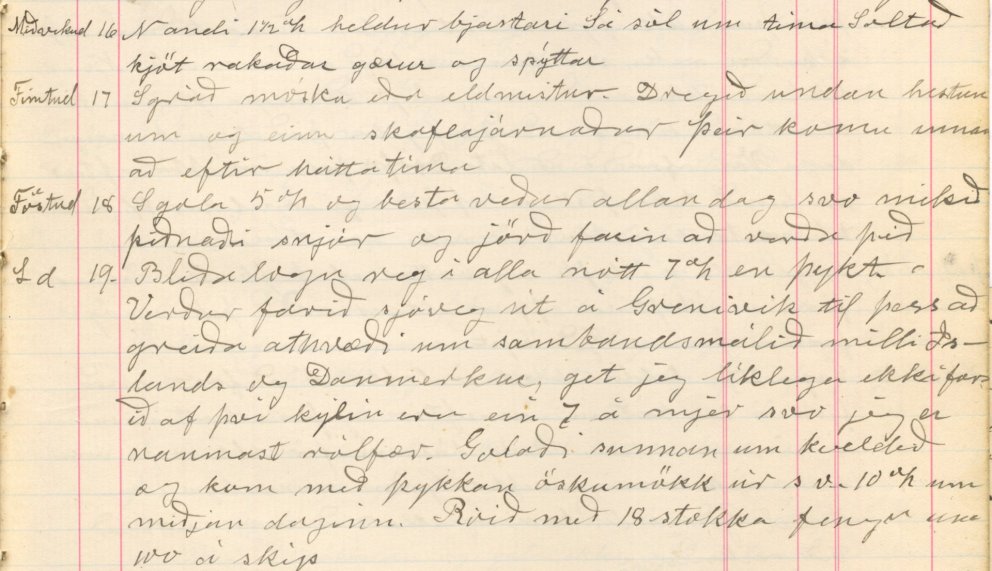 Miðvikud 16 N andi 1½ °h heldur bjartari Sá sól um tíma Saltað
kjöt rakaðar gærur og spýttar
Fimtud 17 S gráð móska eða eldmistur. Dregið undan hestun
um og einn skaflajárnaður þeir komu innan
að eftir háttatíma
Föstud 18 S gola 5 °h og besta veður allan dag svo mikið
þiðnaði snjór og jörð farin að verða þíð
L d 19. Blíða logn veg í alla nótt 7 °h en þykt
Verður farið sjóveg út á Grenivík til þess að
greiða athvæði um sambandsmálið milli Ís-
lands og Danmerkur, get jeg líklega ekki far-
ið af því kýlin eru ein 7 á mjer svo jeg er
naumast rólfær. Golaði sunnan um kveldið
og kom með þykkan öskumökk úr s v. 10 °h um
miðjan daginn. Róið með 18 stokka fengu una
100 á skip